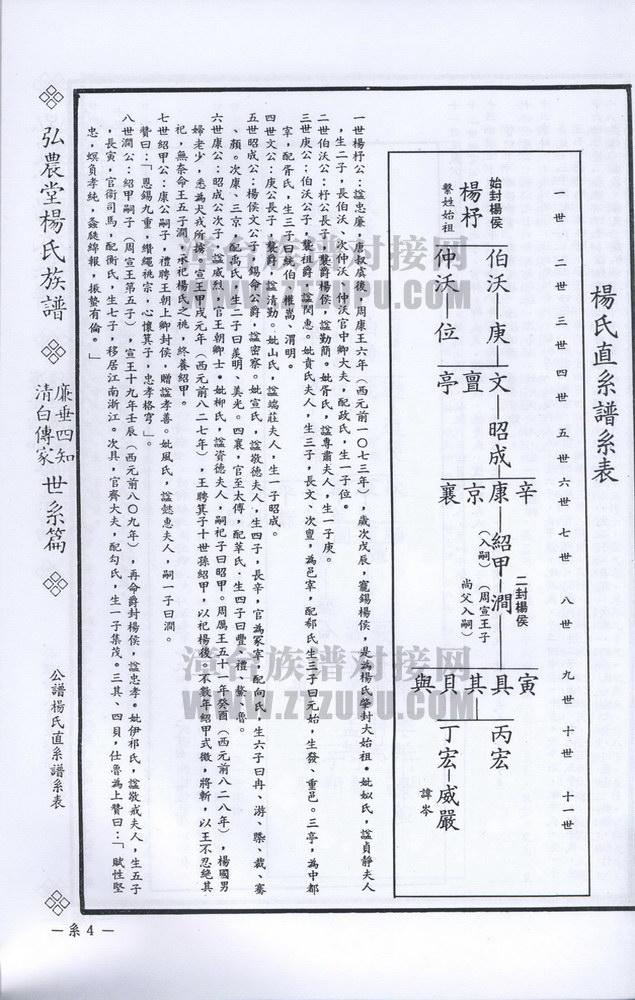 楊氏直系譜系表
一世 二世 三世 四世 五世 六世 七世 八世 九世 十世 十一世
始封楊侯
楊杼
肇姓始祖
伯沃—庚—文—昭成—康—紹甲—澗
仲沃—位 亶 亭
辛 康 京 襄
(入嗣)
二封楊侯
(周宣王子
尚父入嗣)
寅 具 其 貝 與
丙宏
丁宏—威嚴
諱岑
一世楊杼公:諡忠廉,唐叔虞後,周康王六年(西元前一〇七三年),歲次戊辰,寵錫楊侯,是為楊氏肇封大始祖。妣姒氏,諡貞靜夫人
,生二子,長伯沃、次仲沃。仲沃官中卿大夫,配政氏,生一子位。
二世伯沃公:杼公長子,襲爵楊侯,諡勤簡。妣胥氏,諡專肅夫人,生一子庚。
三世庚公:伯沃公子,襲祖爵,諡閔惠。妣賁氏夫人,生三子,長文、次亶,為邑宰,配郗氏生三子曰元始,生發、重邑。三亭,為中都
宰,配胥氏,生三子曰統伯、權嵩、渭明。
四世文公:庚公長子,襲爵,諡清勤。妣山氏,諡端莊夫人,生一子昭成。
五世昭成公:楊侯文公子,錫命公爵,諡密察。妣宣氏,諡敬德夫人,生四子,長辛,官為冢宰,配向氏,生六子曰冉、游、騤、裁、騫
、顏。次康、三京,配禹氏,生二子曰羨明、美光。四襄,官至太傅,配莘氏,生四子曰豐、禮、鰲、魯。
六世康公:昭成公次子,諡威烈,官王朝卿士。妣柳氏,諡資德夫人,嗣祀子曰昭甲。周厲王五十一年癸酉(西元前八二八年),楊國男
婦老少,悉為犬戎所擄。宣王甲戌元年(西元前八二七年),王聘箕子十世孫紹甲,以祀楊後,不數年紹甲式微,將斬,以王不忍絕其
祀,無奈命王五子澗,承祀楊氏之祧,終養紹甲。
七世紹甲公:康公嗣子,禮聘王朝上卿封侯,贈諡孝善。妣風氏,諡懿惠夫人,嗣一子曰澗。
贊曰:「恩錫九重,纘繩祧宗,心懷箕子,忠孝格穹」。
八世澗公:紹甲嗣子(周宣王第五子),宣王十九年壬辰(西元前八〇九年),再命爵封楊侯,諡忠孝。妣伊祁氏,諡敬戒夫人,生五子
,長寅,官銜司馬,配衛氏,生七子,移居江南浙江。次具,官齊大夫,配勾氏,生一子集茂。三其、四貝,仕魯為上贊曰:「賦性堅
忠,螟負孝純,螽斯綿報,振蟄有倫。」
弘農堂楊氏族譜
廉垂四知
清白傳家
世系篇
公譜楊氏直系譜系表
—系4—
河台族谱对接网
WWW.ZTZUPU.COM
河台族谱对接网
WWW.ZTZUPU.COM